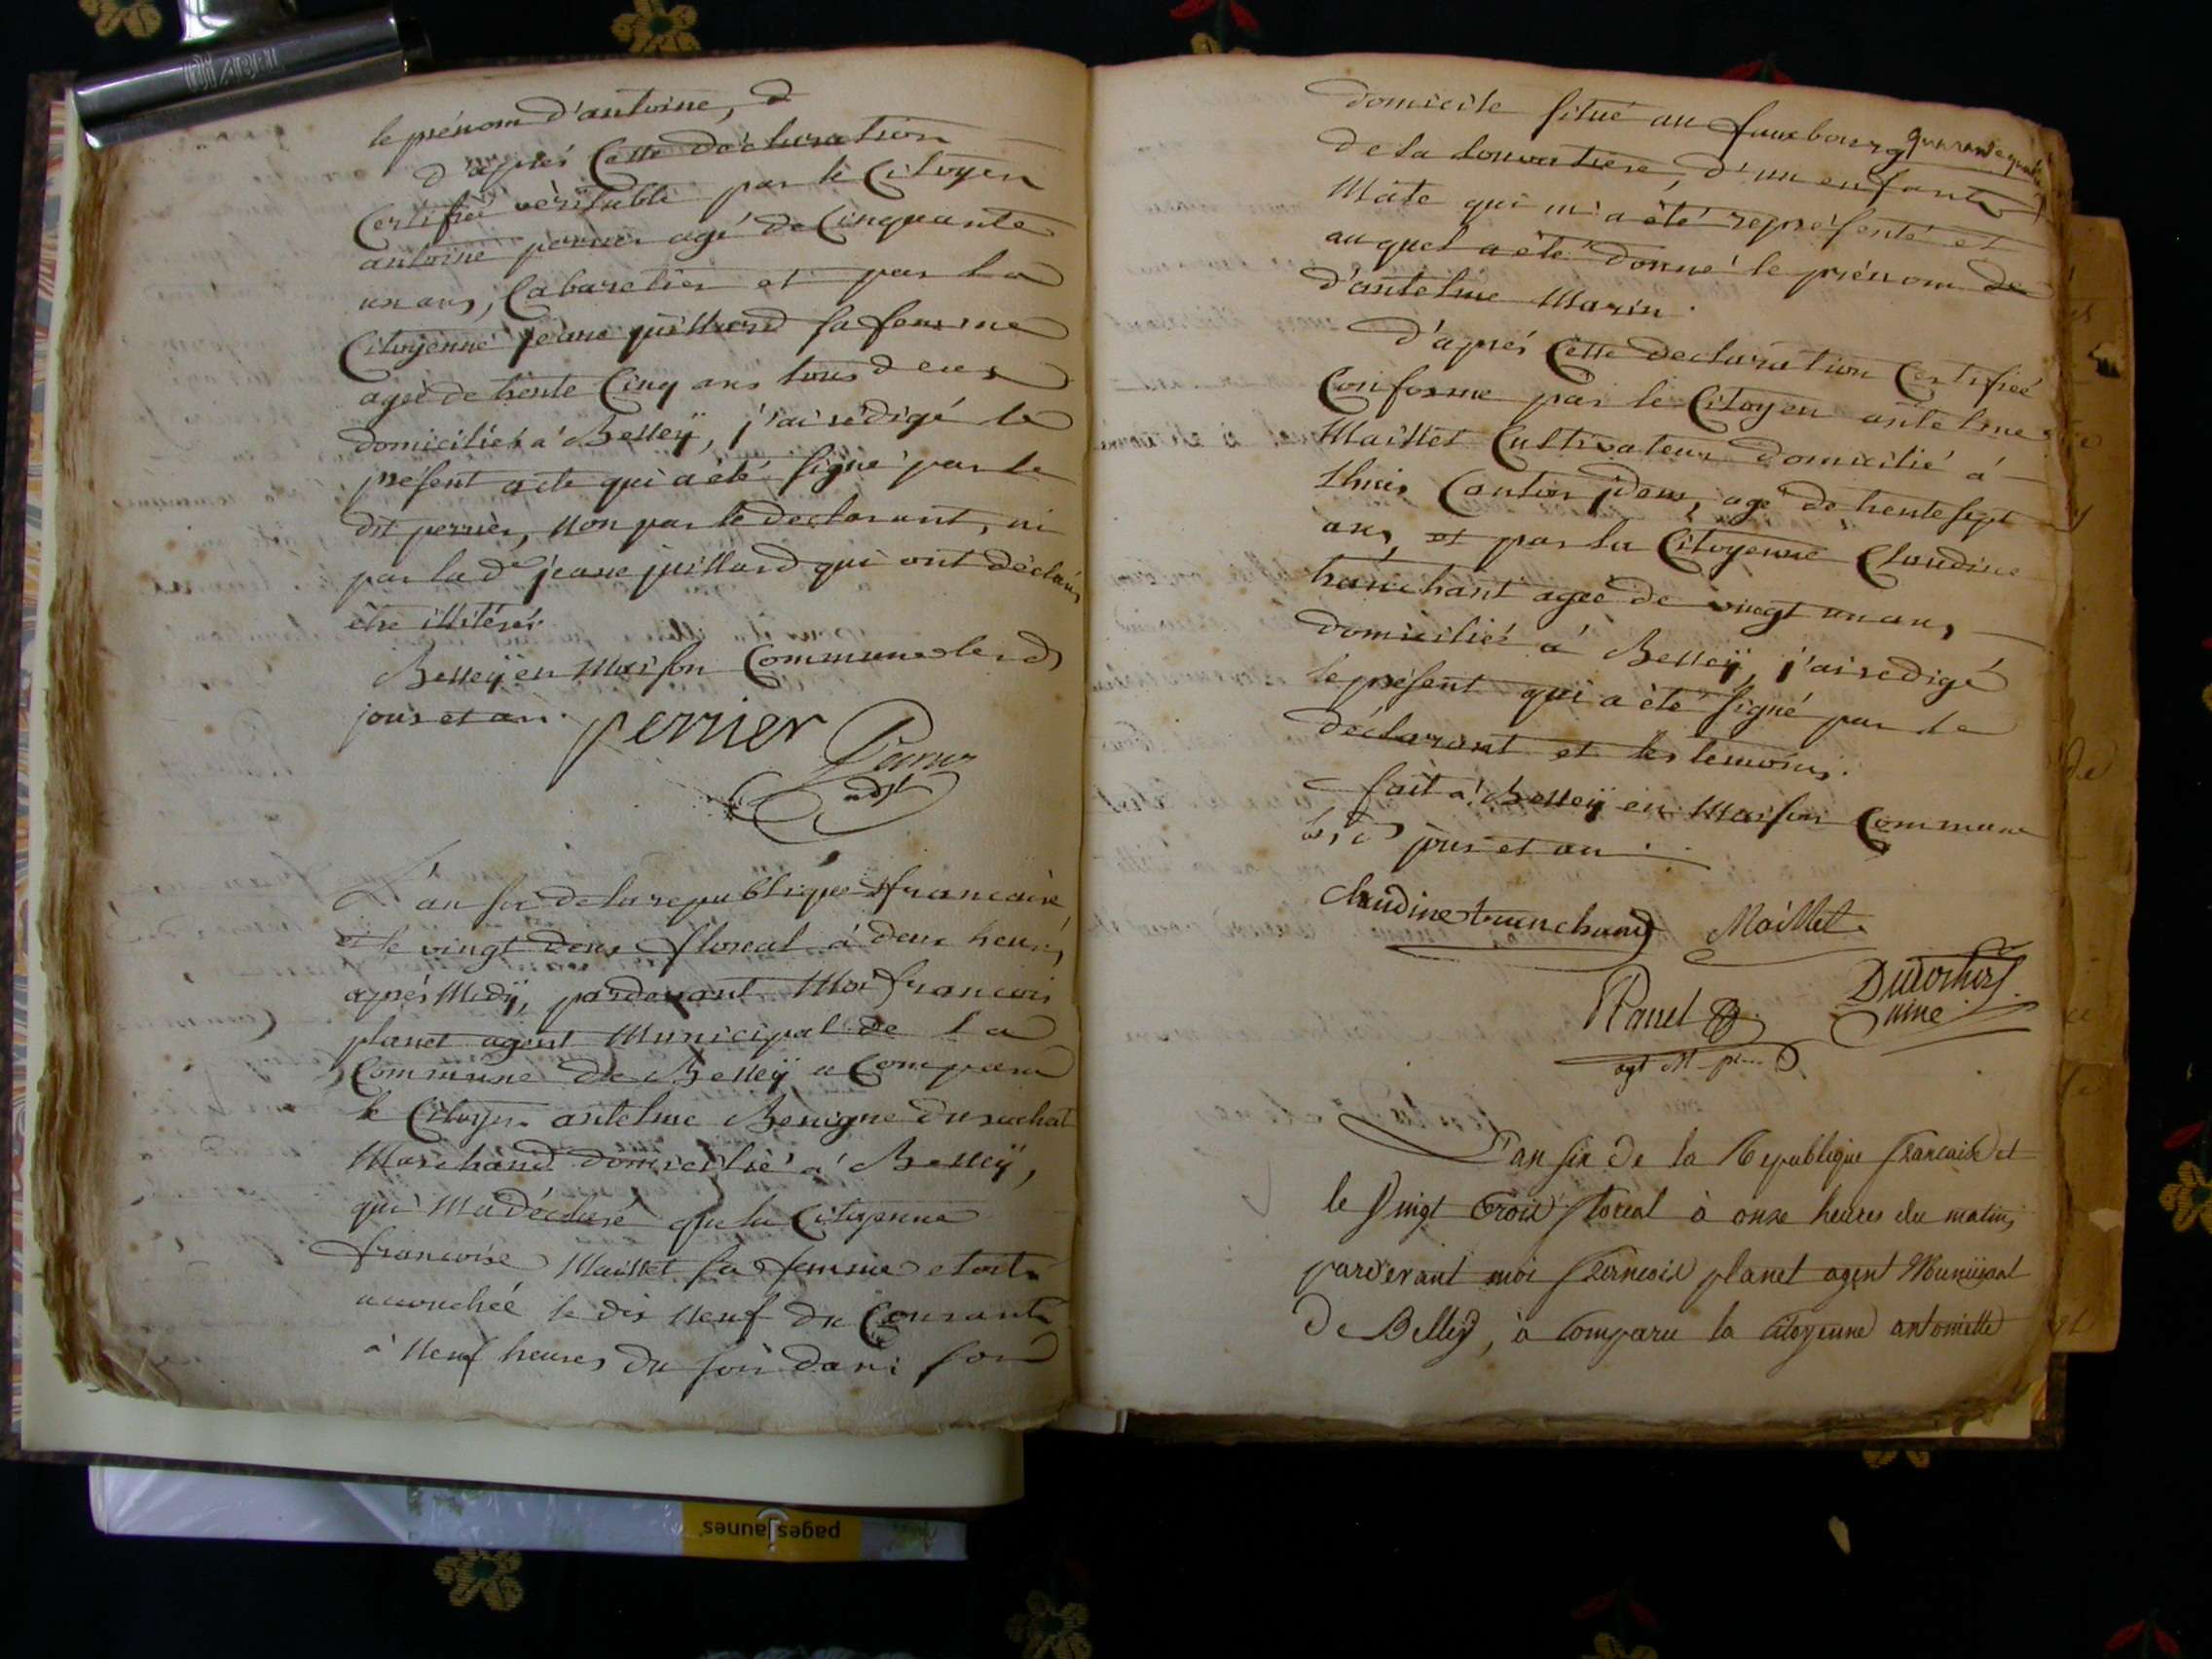 le prénom d'antoine, d
d'aprés Cette déclaration
Certifieé vèritable par le Citoyen
antoine perrier agé de Cinquante
un ans, Cabaretier et par la
Citoyenne jeane juillard sa femme
agée de trente Cinq ans tous deux
domiciliés a' Belleÿ, j'ai rédigé le
présent acte qui a été signé par le
dit perrier, non par le declarant, ni
par la de jeane juillard qui ont déclaré
être illiterés.
Belleÿ en Maison Commune les d
jours et an.
perrier
L'an six de la republique francaise
et le vingt deux floreal à deux heures
aprés Midÿ, pardevant Moi francois
planet agent Municipal de la
Commune de Belleÿ a Comparu
le Citoyen antelme Benigne duruchat
Marchand domicilié a' Belleÿ,
qui M'a déclaré que la Citoyenne
francoise Maillet sa femme etoit
accouchéé le dix neuf du Courant
à neuf heures du soir dans son
domicile situé au fauxbourg
quarante quatre
de la, d'un enfant
Mâle qui m'a été représenté et
auquel a été donné le prénom de
d'antelme Marin.
d'aprés Cette declaration Certifieé
Conforme par le Citoyen antelme
Maillet Cultivateur domicilié á
Canton idem, agé de trente sept
ans, et par la Citoyenne Claudine
tranchant ageé de vingt un ans,
domiciliés a' Belleÿ, j'ai redigé
le présent qui a été signé par le
déclarant et les temoins.
fait a' Belleÿ en Maison Commune
les d jour et an.
Claudine trunchand Maillet
Planet
agt M
L'an six de la Republique francaise et
le Vingt Trois floreal à onze heures du matin,
pardevant moi francois planet agent Municipal
De Belley, à Comparu la Citoyenne antoinette
pagesjaunes